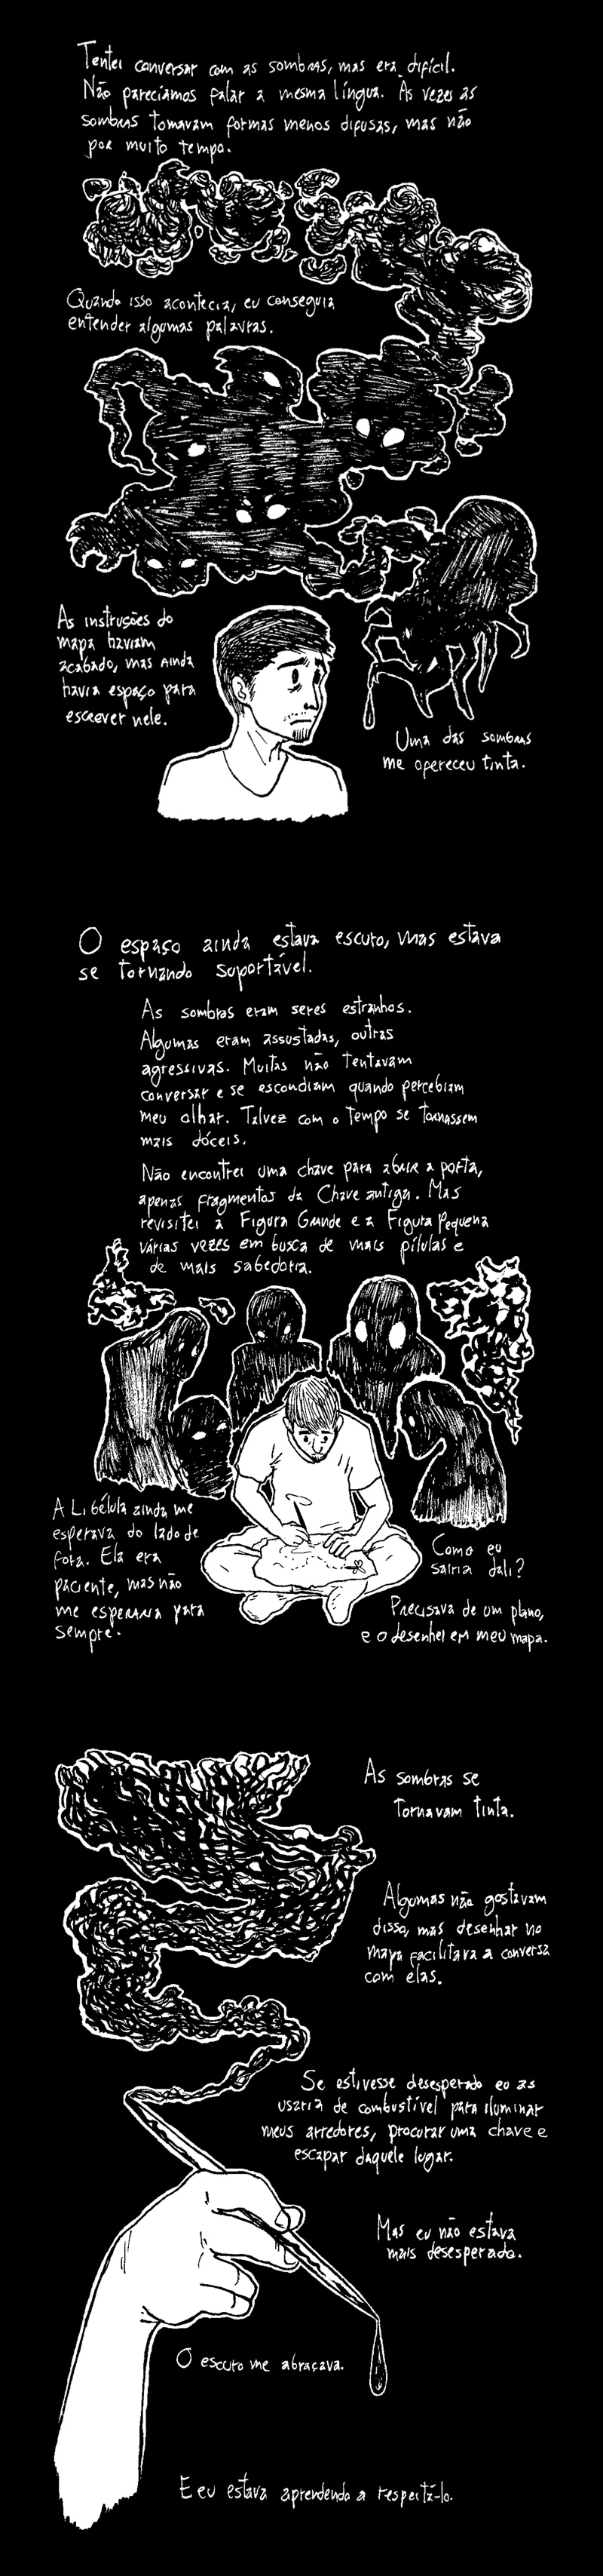 Tentei conversar com as sombras, mas era difícil.
Não parecíamos falar a mesma língua. Às vezes as
sombras tomavam formas menos difusas, mas não
por muito tempo.
Quando isso acontecia, eu conseguia
entender algumas palavras.
As instruções do
mapa haviam
acabado, mas ainda
havia espaço para
escrever nele.
Uma das sombras
me ofereceu tinta.
O espaço ainda estava escuro, mas estava
se tornando suportável.
As sombras eram seres estranhos.
Algumas eram assustadas, outras
agressivas. Muitas não tentavam
conversar e se escondiam quando percebiam
meu olhar. Talvez com o tempo se tornassem
mais dóceis.
Não encontrei uma chave para abrir a porta,
apenas fragmentos da Chave antiga. Mas
revisitei a Figura Grande e a Figura Pequena
várias vezes em busca de mais pílulas e
de mais sabedoria.
A Libélula ainda me
esperava do lado de
fora. Ela era
paciente, mas não
me esperaria para
sempre.
Como eu
sairia dali?
Precisava de um plano,
e o desenhei em meu mapa.
As sombras se
tornavam tinta.
Algumas não gostavam
disso, mas desenhar no
mapa facilitava a conversa
com elas.
Se estivesse desesperado eu as
usaria de combustível para iluminar
meus arredores, procurar uma chave e
escapar daquele lugar.
Mas eu não estava
mais desesperado.
O escuro me abraçava.
E eu estava aprendendo a respeitá-lo.